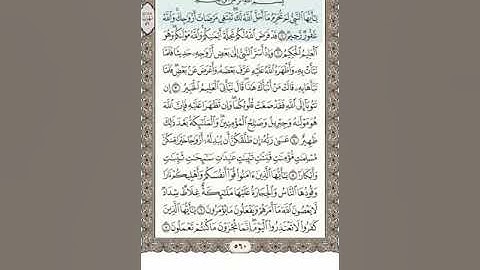 يَٰٓأَيُّهَا ٱلنَّبِيُّ لِمَ تُحَرِّمُ مَآ أَحَلَّ ٱللَّهُ لَكَۖ تَبْتَغِي مَرْضَاتَ أَزْوَٰجِكَۚ وَٱللَّهُ
غَفُورٌ رَّحِيمٌ ١ قَدْ فَرَضَ ٱللَّهُ لَكُمْ تَحِلَّةَ أَيْمَٰنِكُمْۚ وَٱللَّهُ مَوْلَىٰكُمْۖ وَهُوَ
ٱلْعَلِيمُ ٱلْحَكِيمُ ٢ وَإِذْ أَسَرَّ ٱلنَّبِيُّ إِلَىٰ بَعْضِ أَزْوَٰجِهِۦ حَدِيثًا فَلَمَّا
نَبَّأَتْ بِهِۦ وَأَظْهَرَهُ ٱللَّهُ عَلَيْهِ عَرَّفَ بَعْضَهُۥ وَأَعْرَضَ عَنۢ بَعْضٖۖ فَلَمَّا
نَبَّأَهَا بِهِۦ قَالَتْ مَنْ أَنۢبَأَكَ هَٰذَاۖ قَالَ نَبَّأَنِيَ ٱلْعَلِيمُ ٱلْخَبِيرُ ٣ إِن
تَتُوبَآ إِلَى ٱللَّهِ فَقَدْ صَغَتْ قُلُوبُكُمَاۖ وَإِن تَظَٰهَرَا عَلَيْهِ فَإِنَّ ٱللَّهَ
هُوَ مَوْلَىٰهُ وَجِبْرِيلُ وَصَٰلِحُ ٱلْمُؤْمِنِينَۖ وَٱلْمَلَٰٓئِكَةُ بَعْدَ ذَٰلِكَ
ظَهِيرٌ ٤ عَسَىٰ رَبُّهُۥٓ إِن طَلَّقَكُنَّ أَن يُبْدِلَهُۥٓ أَزْوَٰجًا خَيْرٗا مِّنكُنَّ
مُسْلِمَٰتٖ مُّؤْمِنَٰتٖ قَٰنِتَٰتٖ تَٰٓئِبَٰتٍ عَٰبِدَٰتٖ سَٰٓئِحَٰتٖ ثَيِّبَٰتٖ
وَأَبْكَارٗا ٥ يَٰٓأَيُّهَا ٱلَّذِينَ ءَامَنُوا۟ قُوٓا۟ أَنفُسَكُمْ وَأَهْلِيكُمْ نَارٗا
وَقُودُهَا ٱلنَّاسُ وَٱلْحِجَارَةُ عَلَيْهَا مَلَٰٓئِكَةٌ غِلَاظٌ شِدَادٌ
لَّا يَعْصُونَ ٱللَّهَ مَآ أَمَرَهُمْ وَيَفْعَلُونَ مَا يُؤْمَرُونَ ٦ يَٰٓأَيُّهَا ٱلَّذِينَ
كَفَرُوا۟ لَا تَعْتَذِرُوا۟ ٱلْيَوْمَۖ إِنَّمَا تُجْزَوْنَ مَا كُنتُمْ تَعْمَلُونَ ٧
٥٦٠